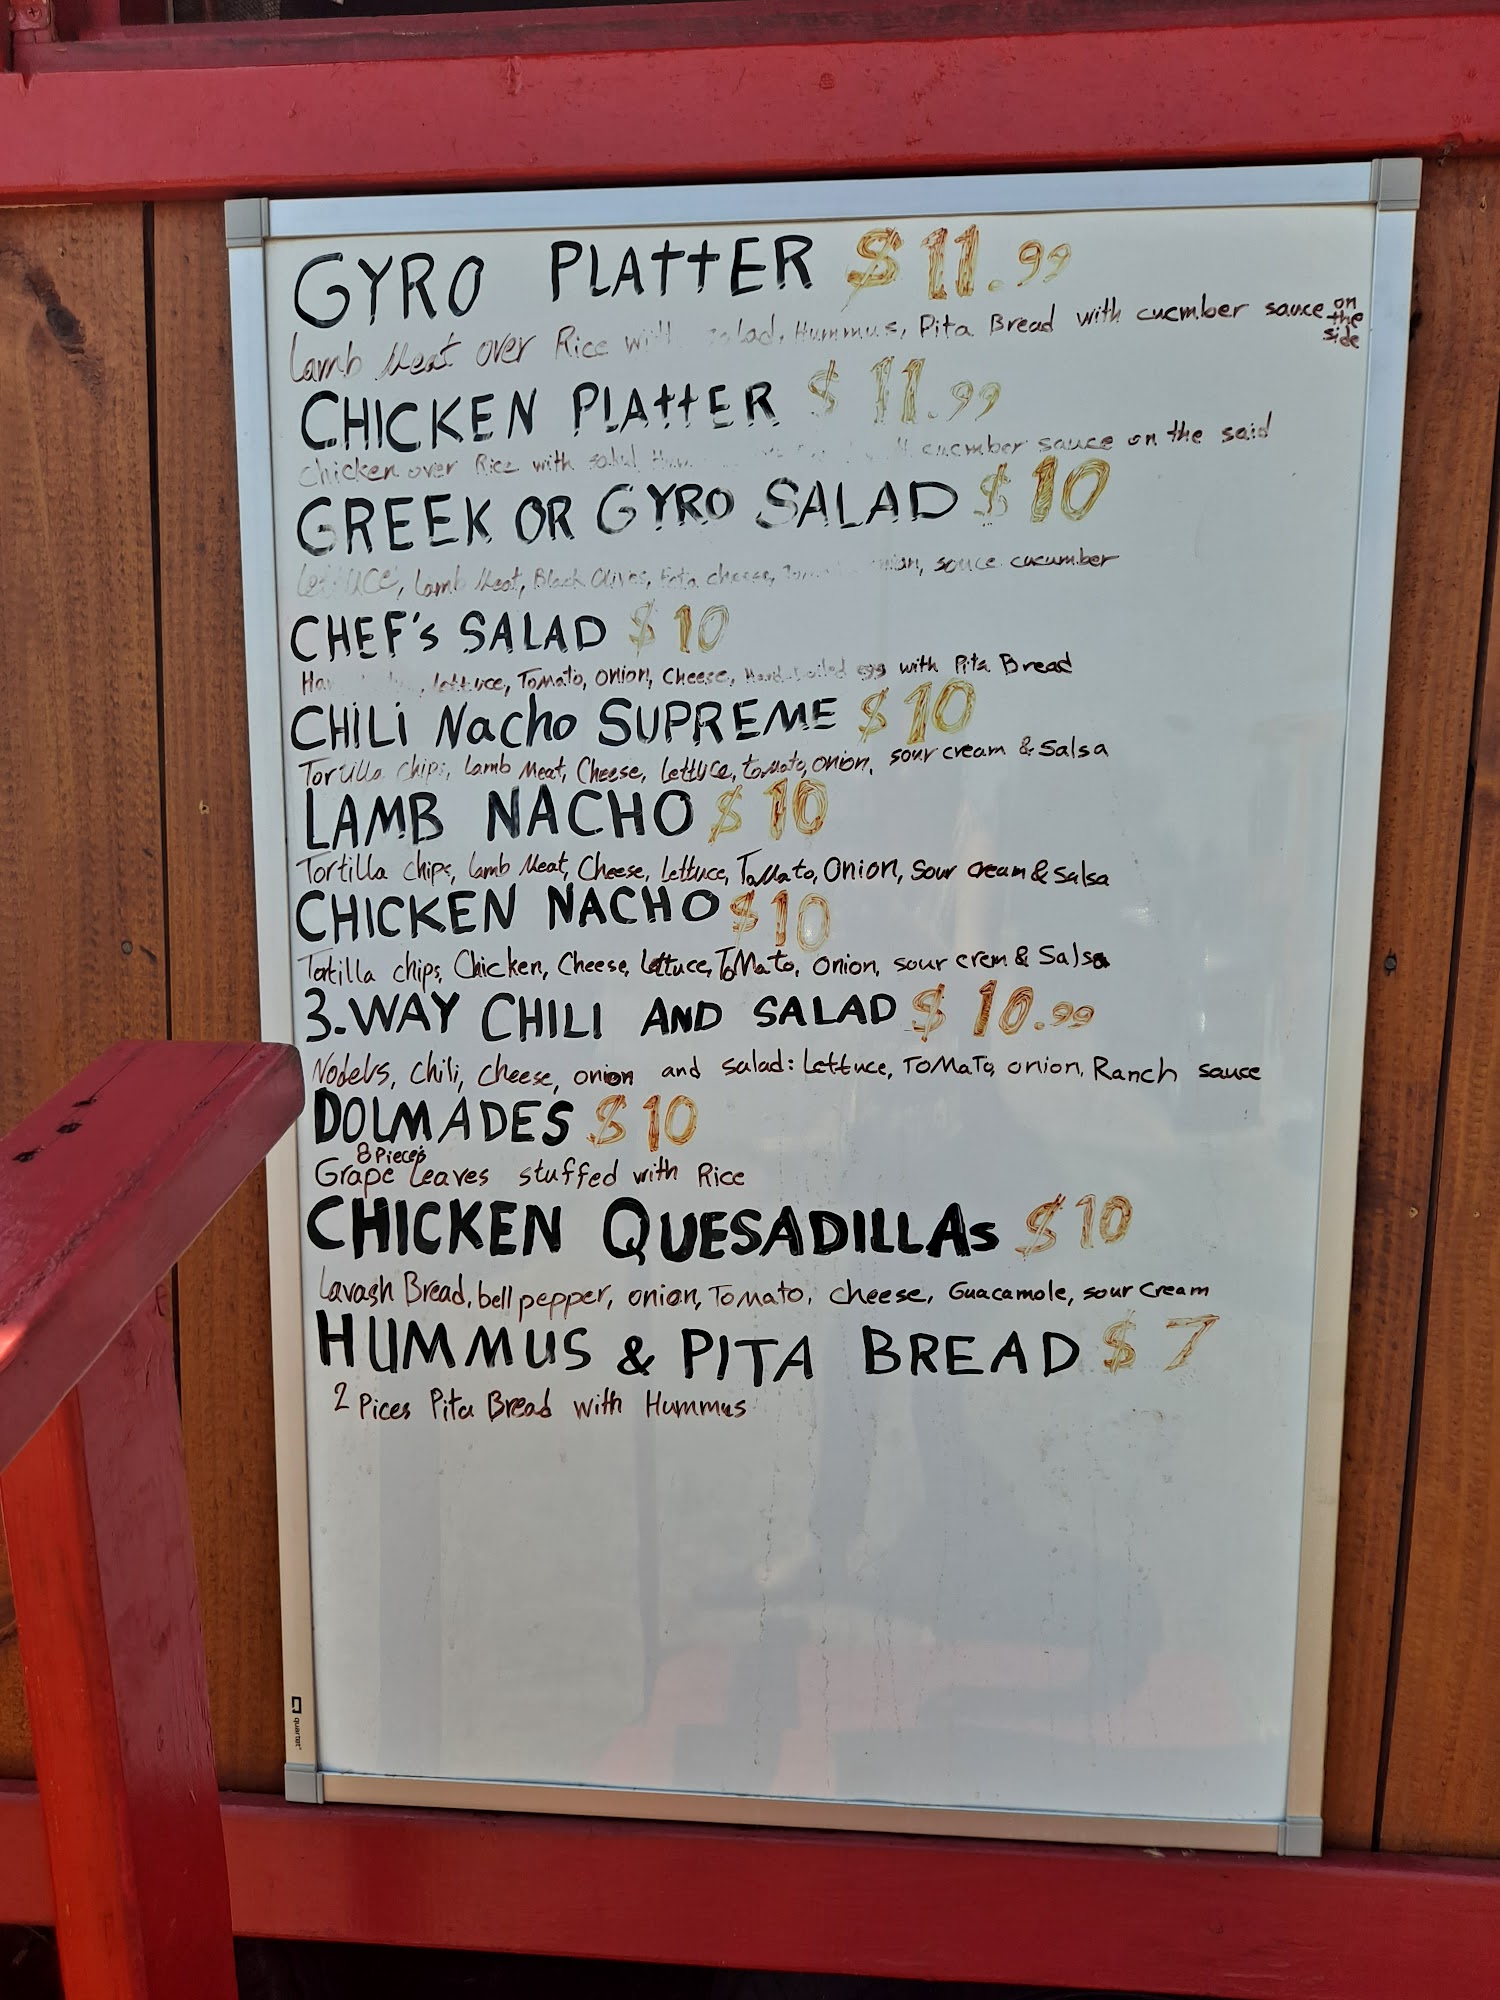 GYRO PLAttER $11.99
Lamb Meat over Rice with salad, Hummus, Pita Bread with cucmber sauce on the side
CHICKEN PLAttER $11.99
chicken over Rice with salad cucmber sauce on the said
GREEK OR GYRO SALAD $10
Lettuce, Lamb Meat, Black Olives, Feta cheese, souce cucumber
CHEF's SALAD $10
lettuce, Tomato, onion, Cheese, Hard-boiled egg with Pita Bread
CHiLi Nacho SUPREME $10
Tortilla chips, Lamb Meat, Cheese, Lettuce, tomato, onion, sour cream & Salsa
LAMB NACHO $10
Tortilla chips, Lamb Meat, Cheese, Lettuce, Tomato, Onion, Sour cream & Salsa
CHICKEN NACHO $10
Tortilla chips, Chicken, Cheese, Lettuce, ToMato, onion, sour crem & Salsa
3.WAY CHILI AND SALAD $10.99
Nodels, Chili, cheese, onion and salad: Lettuce, ToMaTo, onion, Ranch sauce
DOLMADES $10
8 Pieces
Grape Leaves stuffed with Rice
CHICKEN QUESADILLAs $10
Lavash Bread, bell pepper, onion, Tomato, cheese, Guacamole, sour cream
HUMMUS & PITA BREAD $7
2 Pices Pita Bread with Hummus
quartet